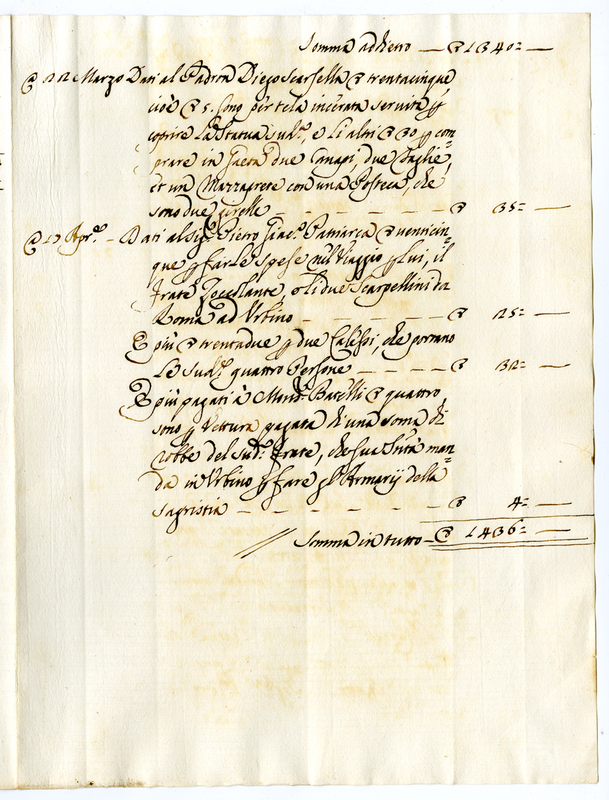 Somma adietro — ∇ 1340: —
A 22 Marzo Dati al Padron Diego Scarsella ∇ trentacinque,
cioè ∇ 5. sono per tela incerata servita p
coprire La Statua sud.ª, e li altri ∇ 30 p com=
prare in Gaeta due Canapi, due Taglie,
et un Mazzaprete con una Posteca, che
sono due girelle — — — — — ∇ 35: —
A 13 Apr.e – Dati al Sig.r Pietro Giac.º Patriarca ∇ venticin=
que p far le spese nel Viaggio p lui, il
frate Zoccolante, e li due Scarpellini da
Roma ad Urbino — — — — — ∇ 25: —
E più ∇ trentadue p due Calessi, che portano
Le sud.e quattro Persone — — — — ∇ 32: —
E più pagati à Mons.r Battelli ∇ quattro,
sono p Vettura pagata di una soma di
robbe del sud.º frate, che sua S.ntà man=
da in Urbino p fare gl'Armarij della
Sagristia — — — — — — ∇ 4: —
// Somma in tutto — ∇ 1436: —